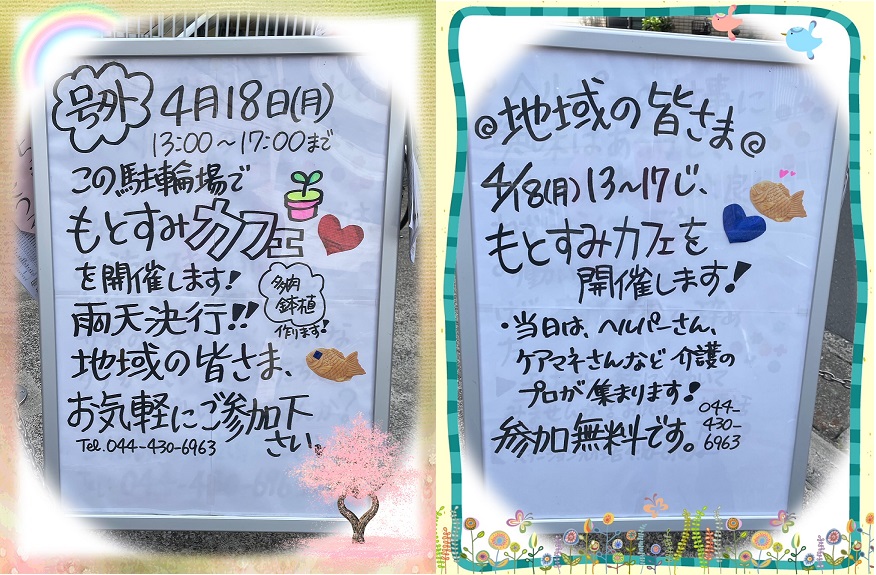 号外
4月18日(月)
13:00～17:00まで
この駐輪場で
もとすみカフェ
を開催します!
多肉
鉢植
作ります!
雨天決行!!
地域の皆さま、
お気軽にご参加下
さい。
Tel.044-430-6963
◎地域の皆さま◎
4/18(月)13～17じ、
もとすみカフェを
開催します!
・当日は、ヘルパーさん、
ケアマネさんなど介護の
プロが集まります!
参加無料です。
044-
430-
6963